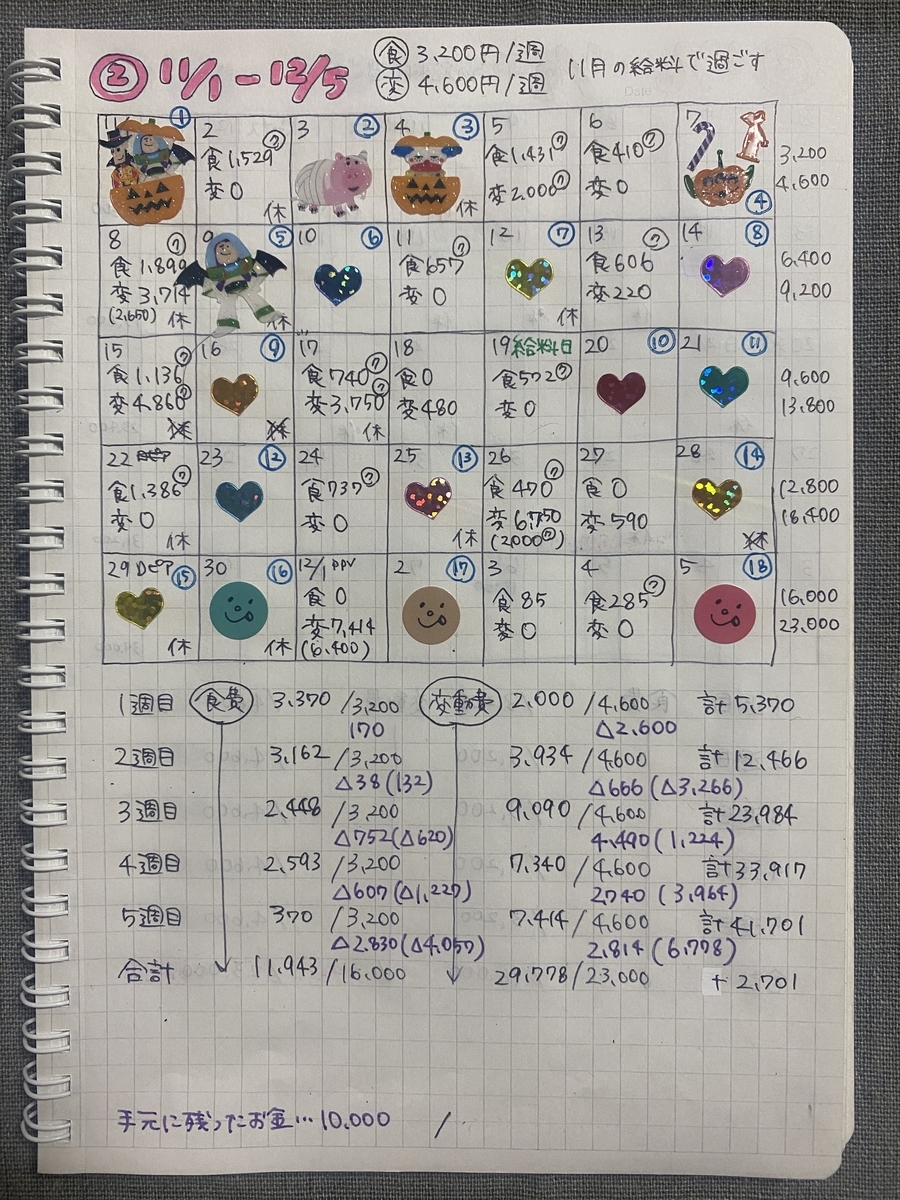 ② 11/1-12/5
食 3,200円/週
変 4,600円/週
11月の給料で過ごす
Date
①
2
食1,529 ク
変0
休
3 ②
4 ③
休
5
食1,431 ク
変2,000 ク
6
食410 ク
変0
7
④
3,200
4,600
8 ク
食1,899
変3,714
(2,650) 休
9 ⑤
休
10 ⑥
11
食657 ク
変0
12 ⑦
休
13 ク
食606
変220
14 ⑧
6,400
9,200
15
食1,136 ク
変4,860 ク
休
16 ⑨
休
17
食740 ク
変3,750 ク
休
18
食0
変480
19給料日
食572 ク
変0
20 ⑩
21 ⑪
9,600
13,800
22
食1,386 ク
変0
休
23 ⑫
24
食737 ク
変0
25 ⑬
休
26
食470 ク
変6,750
(2,000 ク)
27
食0
変590
28 ⑭
休
12,800
18,400
29 ⑮
休
30 ⑯
休
12/1
食0
変7,414
(6,400)
2 ⑰
3
食85
変0
4
食285 ク
変0
5 ⑱
16,000
23,000
1週目 食費 3,370/3,200 変動費 2,000/4,600 計5,370
170 △2,600
2週目 3,162/3,200 3,934/4,600 計12,466
△38(132) △666(△3,266)
3週目 2,448/3,200 9,090/4,600 計23,984
△752(△620) 4,490(1,224)
4週目 2,593/3,200 7,340/4,600 計33,917
△607(△1,227) 2,740(3,964)
5週目 370/3,200 7,414/4,600 計41,701
△2,830(△4,057) 2,814(6,778)
合計 11,943/16,000 29,778/23,000 +2,701
手元に残ったお金…10,000 /